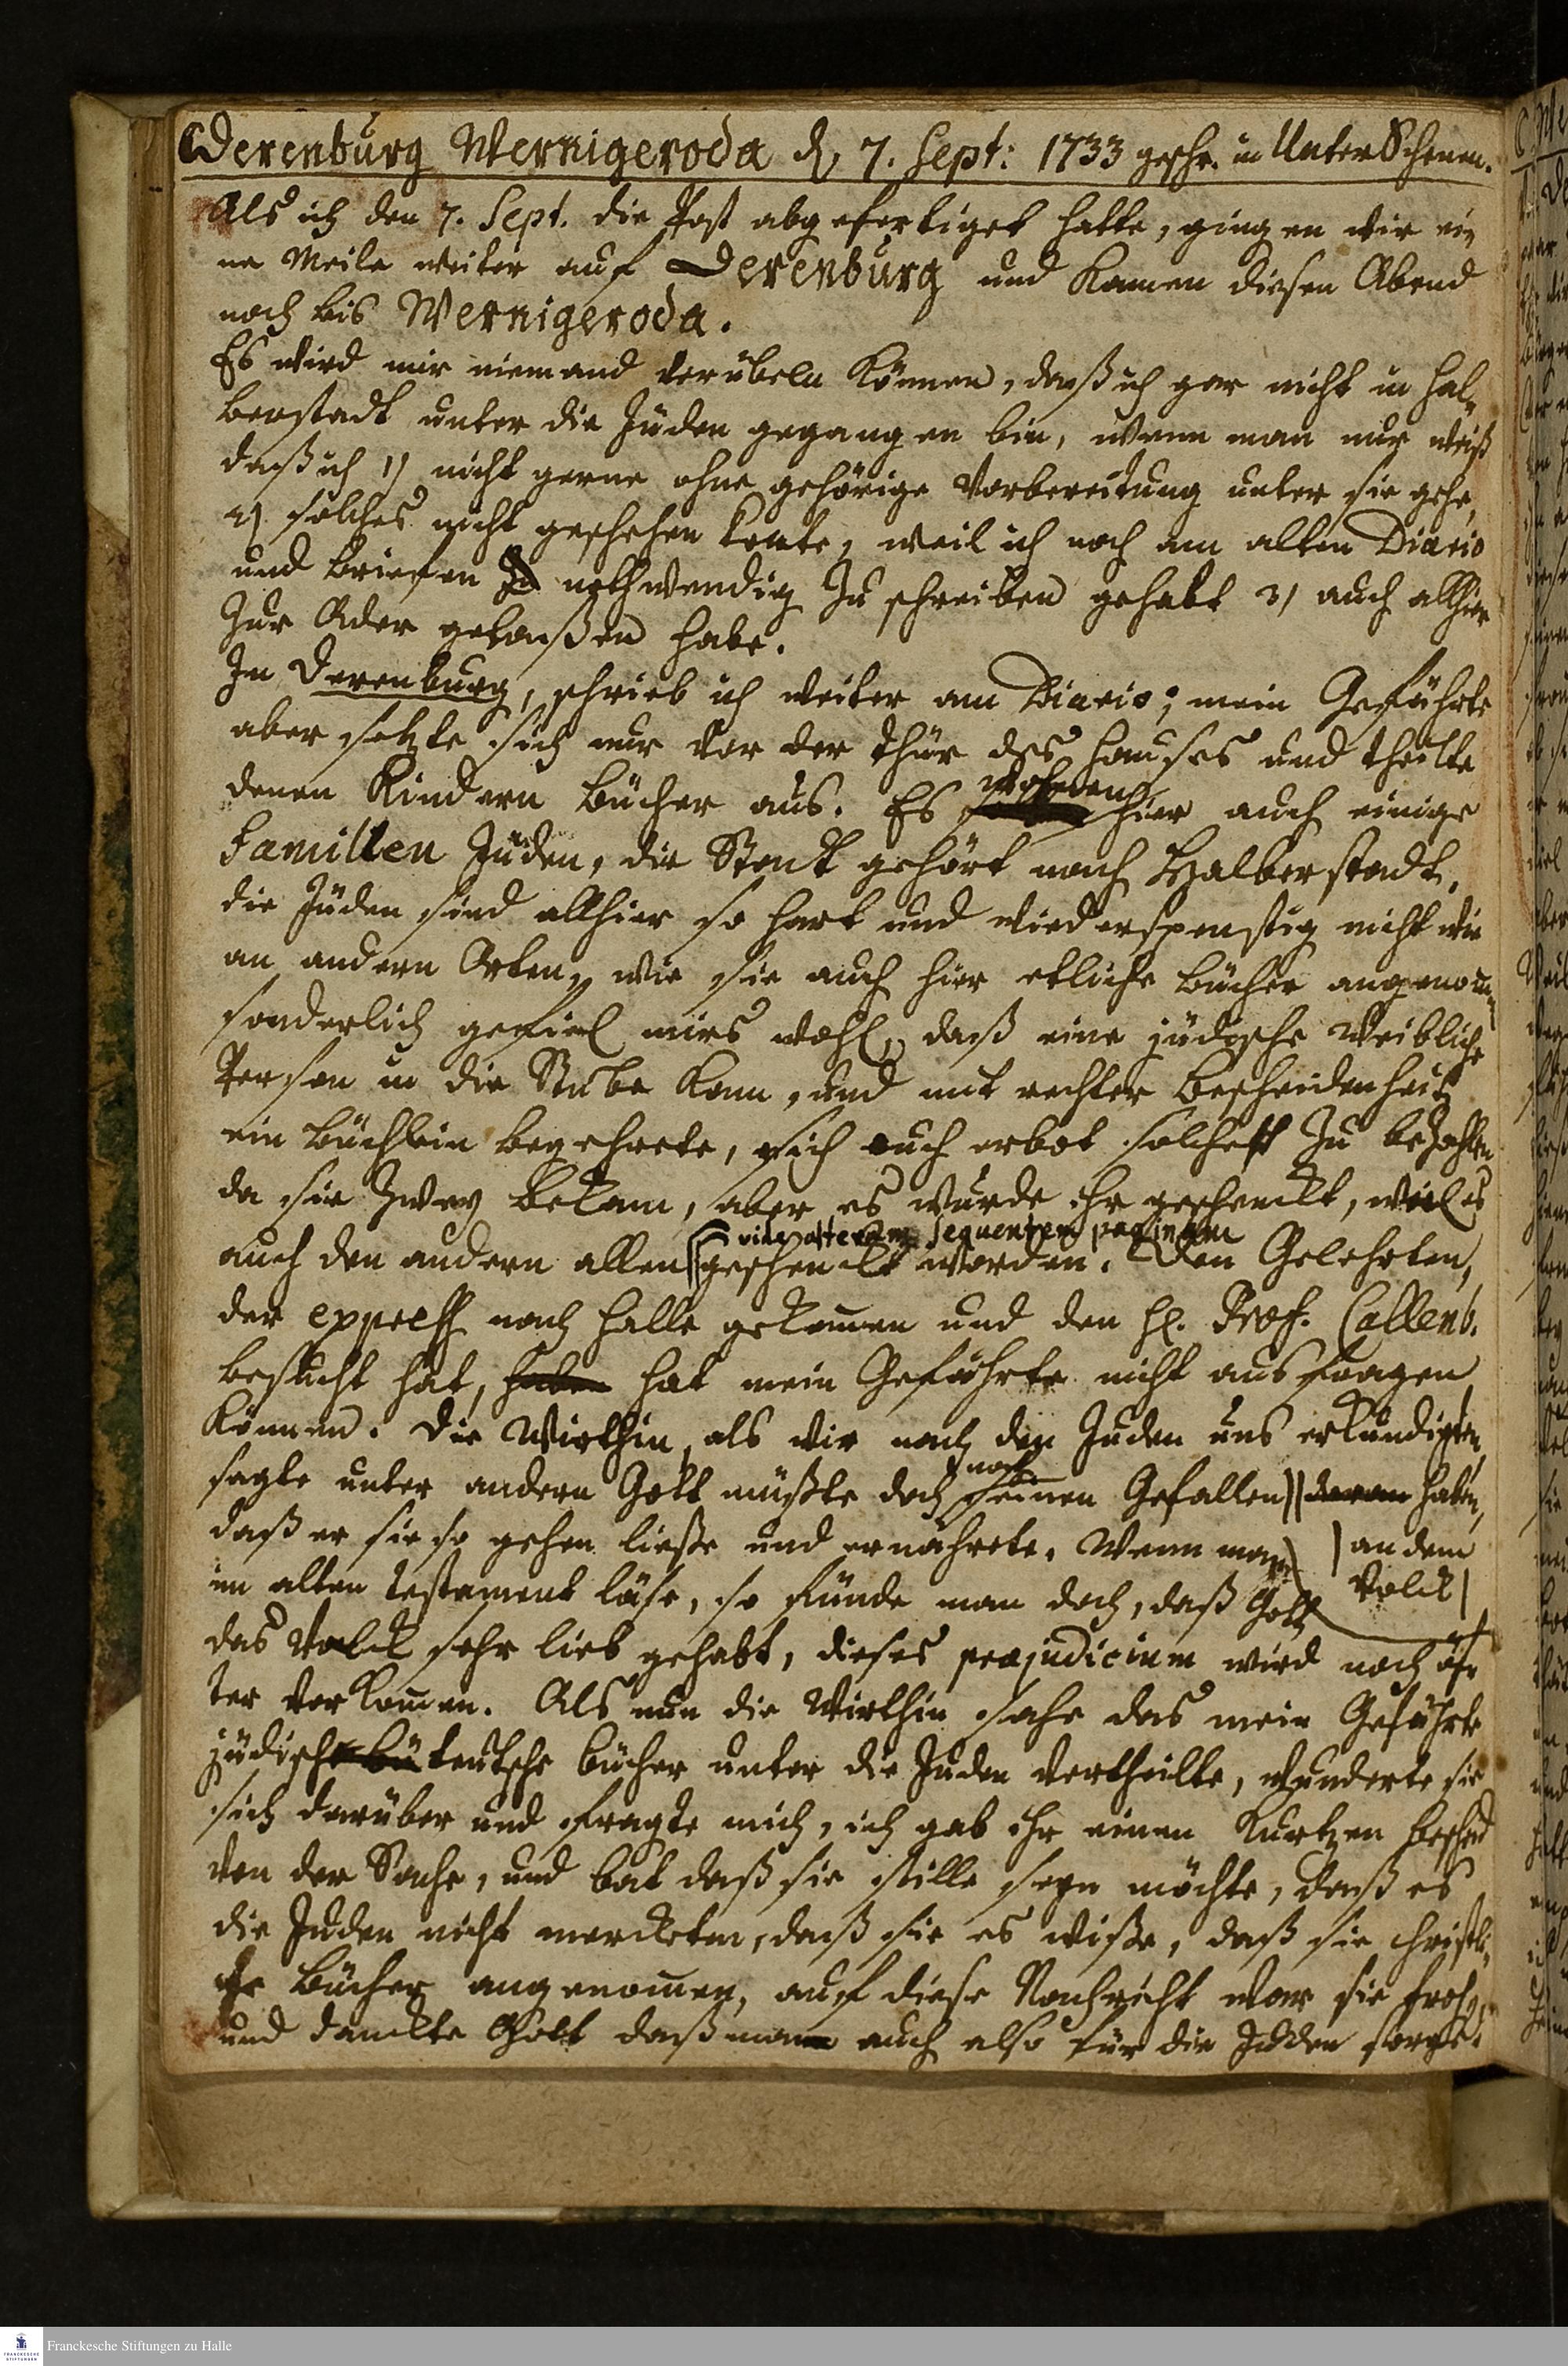 Derenburg Wernigeroda d. 7. Sept: 1733 geschr. in UnterSchauen.
Als ich den 7. Sept. die Post abgefertiget hatte, gingen wir ei-
ne Meile weiter auf Derenburg und kamen diesen Abend
noch bis Wernigeroda.
Es wird mir niemand verübeln können, daß ich gar nicht in Hal-
berstadt unter die Juden gegangen bin, wenn man nur weiß
daß ich 1) nicht gerne ohne gehörige Vorbereitung unter sie gehe,
2) solches nicht geschehen konte, weil ich noch am alten Diario
und Briefen nothwendig zu schreiben gehabt 3) auch allhier
zur Ader gelaßen habe.
In Derenburg, schrieb ich weiter am Diario; mein Gefährte
aber setzte sich nur vor der Thür des Hauses und theilte
denen Kindern Bücher aus. Es wohnen hier auch einige
Familien Juden, die Stadt gehört nach Halberstadt,
die Juden sind allhier so hart und wiederspenstig nicht wie
an andern Orten, wie sie auch hier etliche Bücher angenom̄en
sonderlich gefiel mirs wohl, daß eine jüdische Weibliche
Person in die Stube kam, und mit rechter Bescheidenheit
ein Büchlein begehrete, sich auch erbot solches zu bezahlen
da sie zwey bekam, aber es wurde ihr geschenckt, weil es
vide alteram sequentem paginam
auch den andern allen geschenckt worden. Den Gelehrten,
der express nach Halle gekom̄en und den H. Prof. Callenb.
besucht hat, haben hat mein Gefährte nicht ausfragen
können. Die Wirthin, als wir nach den Juden uns erkundigten,
sagte unter andern Gott müßte doch noch seinen Gefallen daran haben,
daß er sie so gehen ließe und ernährete. Wenn man an dem
im alten Testament läse, so fünde man doch, daß Gott Volck
das Volck sehr lieb gehabt, dieses praejudicium wird noch öf-
ter vorkom̄en. Als nun die Wirthin sahe das mein Gefährte
jüdisch bü teutsche Bücher unter die Juden vertheilte, wunderte sie
sich darüber und fragte mich, ich gab ihr einen kurtzen Bescheid
von der Sache, und bat daß sie stille seyn möchte, daß es
die Juden nicht merckten, daß sie es wiße, daß sie christli-
che Bücher angenom̄en, auf diese Nachricht war sie froh,
und danckte Gott daß man auch also für die Juden sorge.
Franckesche Stiftungen zu Halle